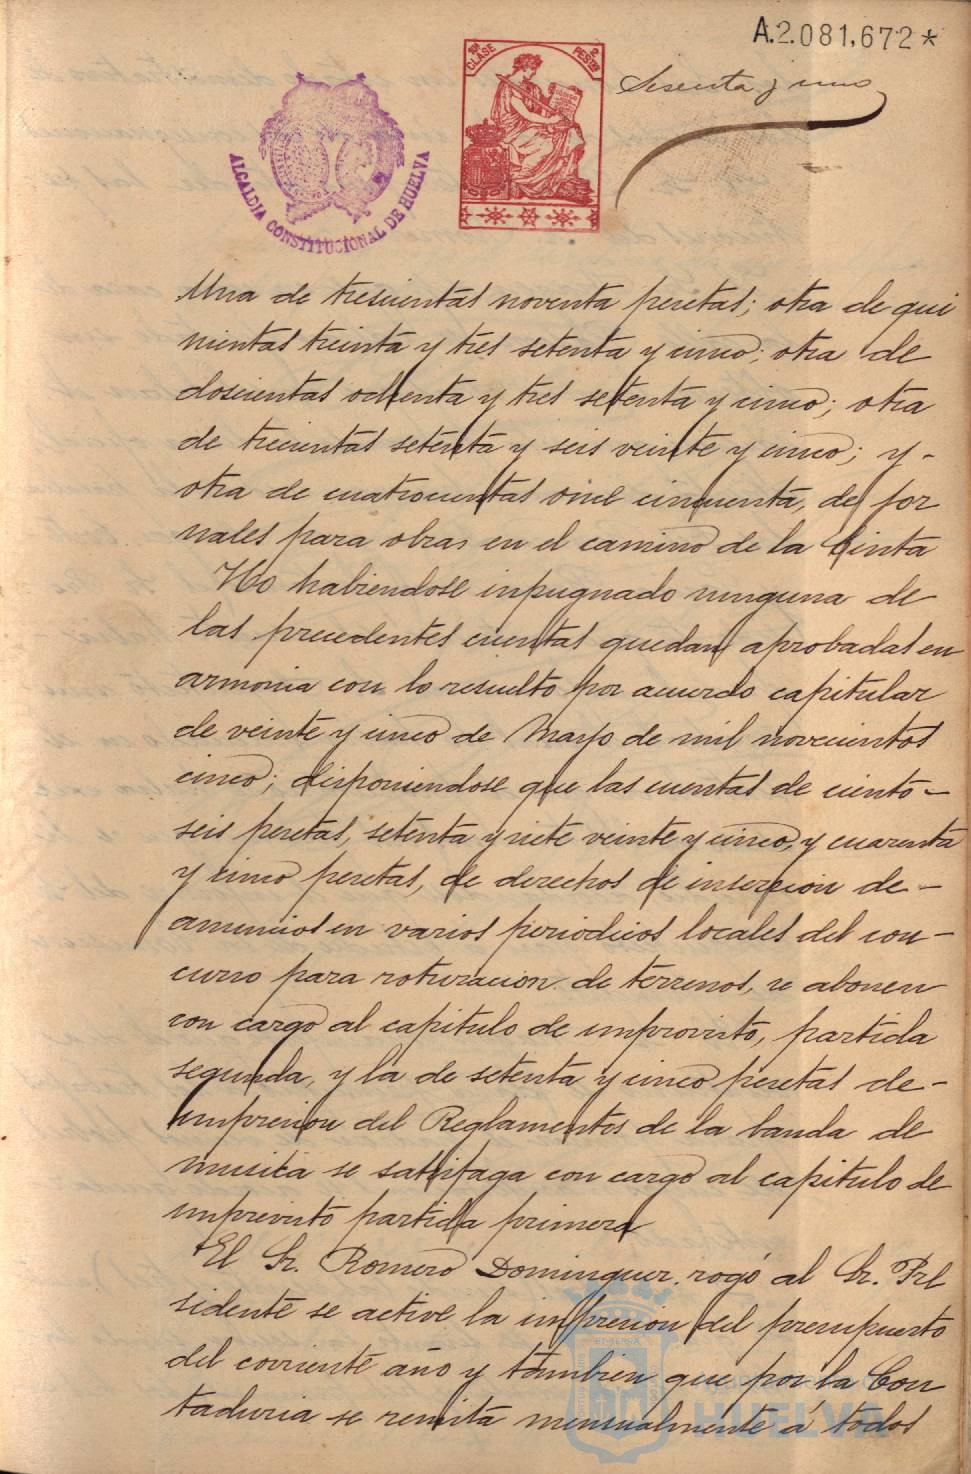 A.2.081,672*
10ª CLASE 2 PESETAS
Sesenta y uno
ALCALDIA CONSTITUCIONAL DE HUELVA
Una de trescientas noventa pesetas; otra de qui
nientas treinta y tres setenta y cinco; otra de
doscientas ochenta y tres setenta y cinco; otra
de trecientas setenta y seis veinte y cinco; y -
otra de cuatrocientas once cincuenta, de jor
nales para obras en el camino de la Cinta
No habiendose inpugnado ninguna de
las precedentes cuentas quedan aprobadas en
armonia con lo resuelto por acuerdo capitular
de veinte y cinco de Mayo de mil novecientos
cinco; disponiendose que las cuentas de ciento -
seis pesetas, setenta y siete veinte y cinco, y cuarenta
y cinco pesetas, de derechos de insercion de -
anuncios en varios periodicos locales del con -
curso para roturacion de terrenos, se abonen
con cargo al capitulo de imprevisto, partida
segunda, y la de setenta y cinco pesetas de -
impresion del Reglamentos de la banda de
musica se satisfaga con cargo al capitulo de
imprevisto partida primera
El Sr. Romero Dominguez rogó al Sr. Pre
sidente se active la impresion del presupuesto
del corriente año y tambien que por la Con
taduria se remita mensualmente á todos
HUELVA